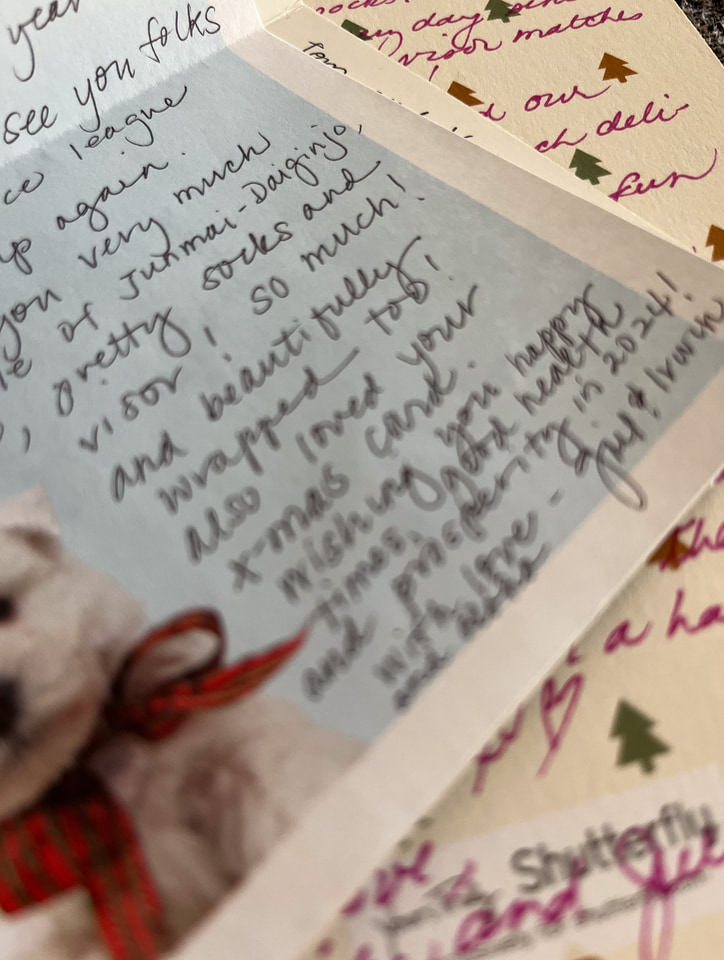 year
see you folks
ce league
up again.
you very much
le of Junmai-Daiginjo,
, pretty socks and
visor! so much!
and beautifully
wrapped too!
also loved your
x-mas card.
Wishing you happy
times, good health
and prosperity in 2024!
with love -
and
& Irwin
socks
my day
visor matches
!
d our
ch deli-
fun
Tom
the
a ha
Shutterfly
and